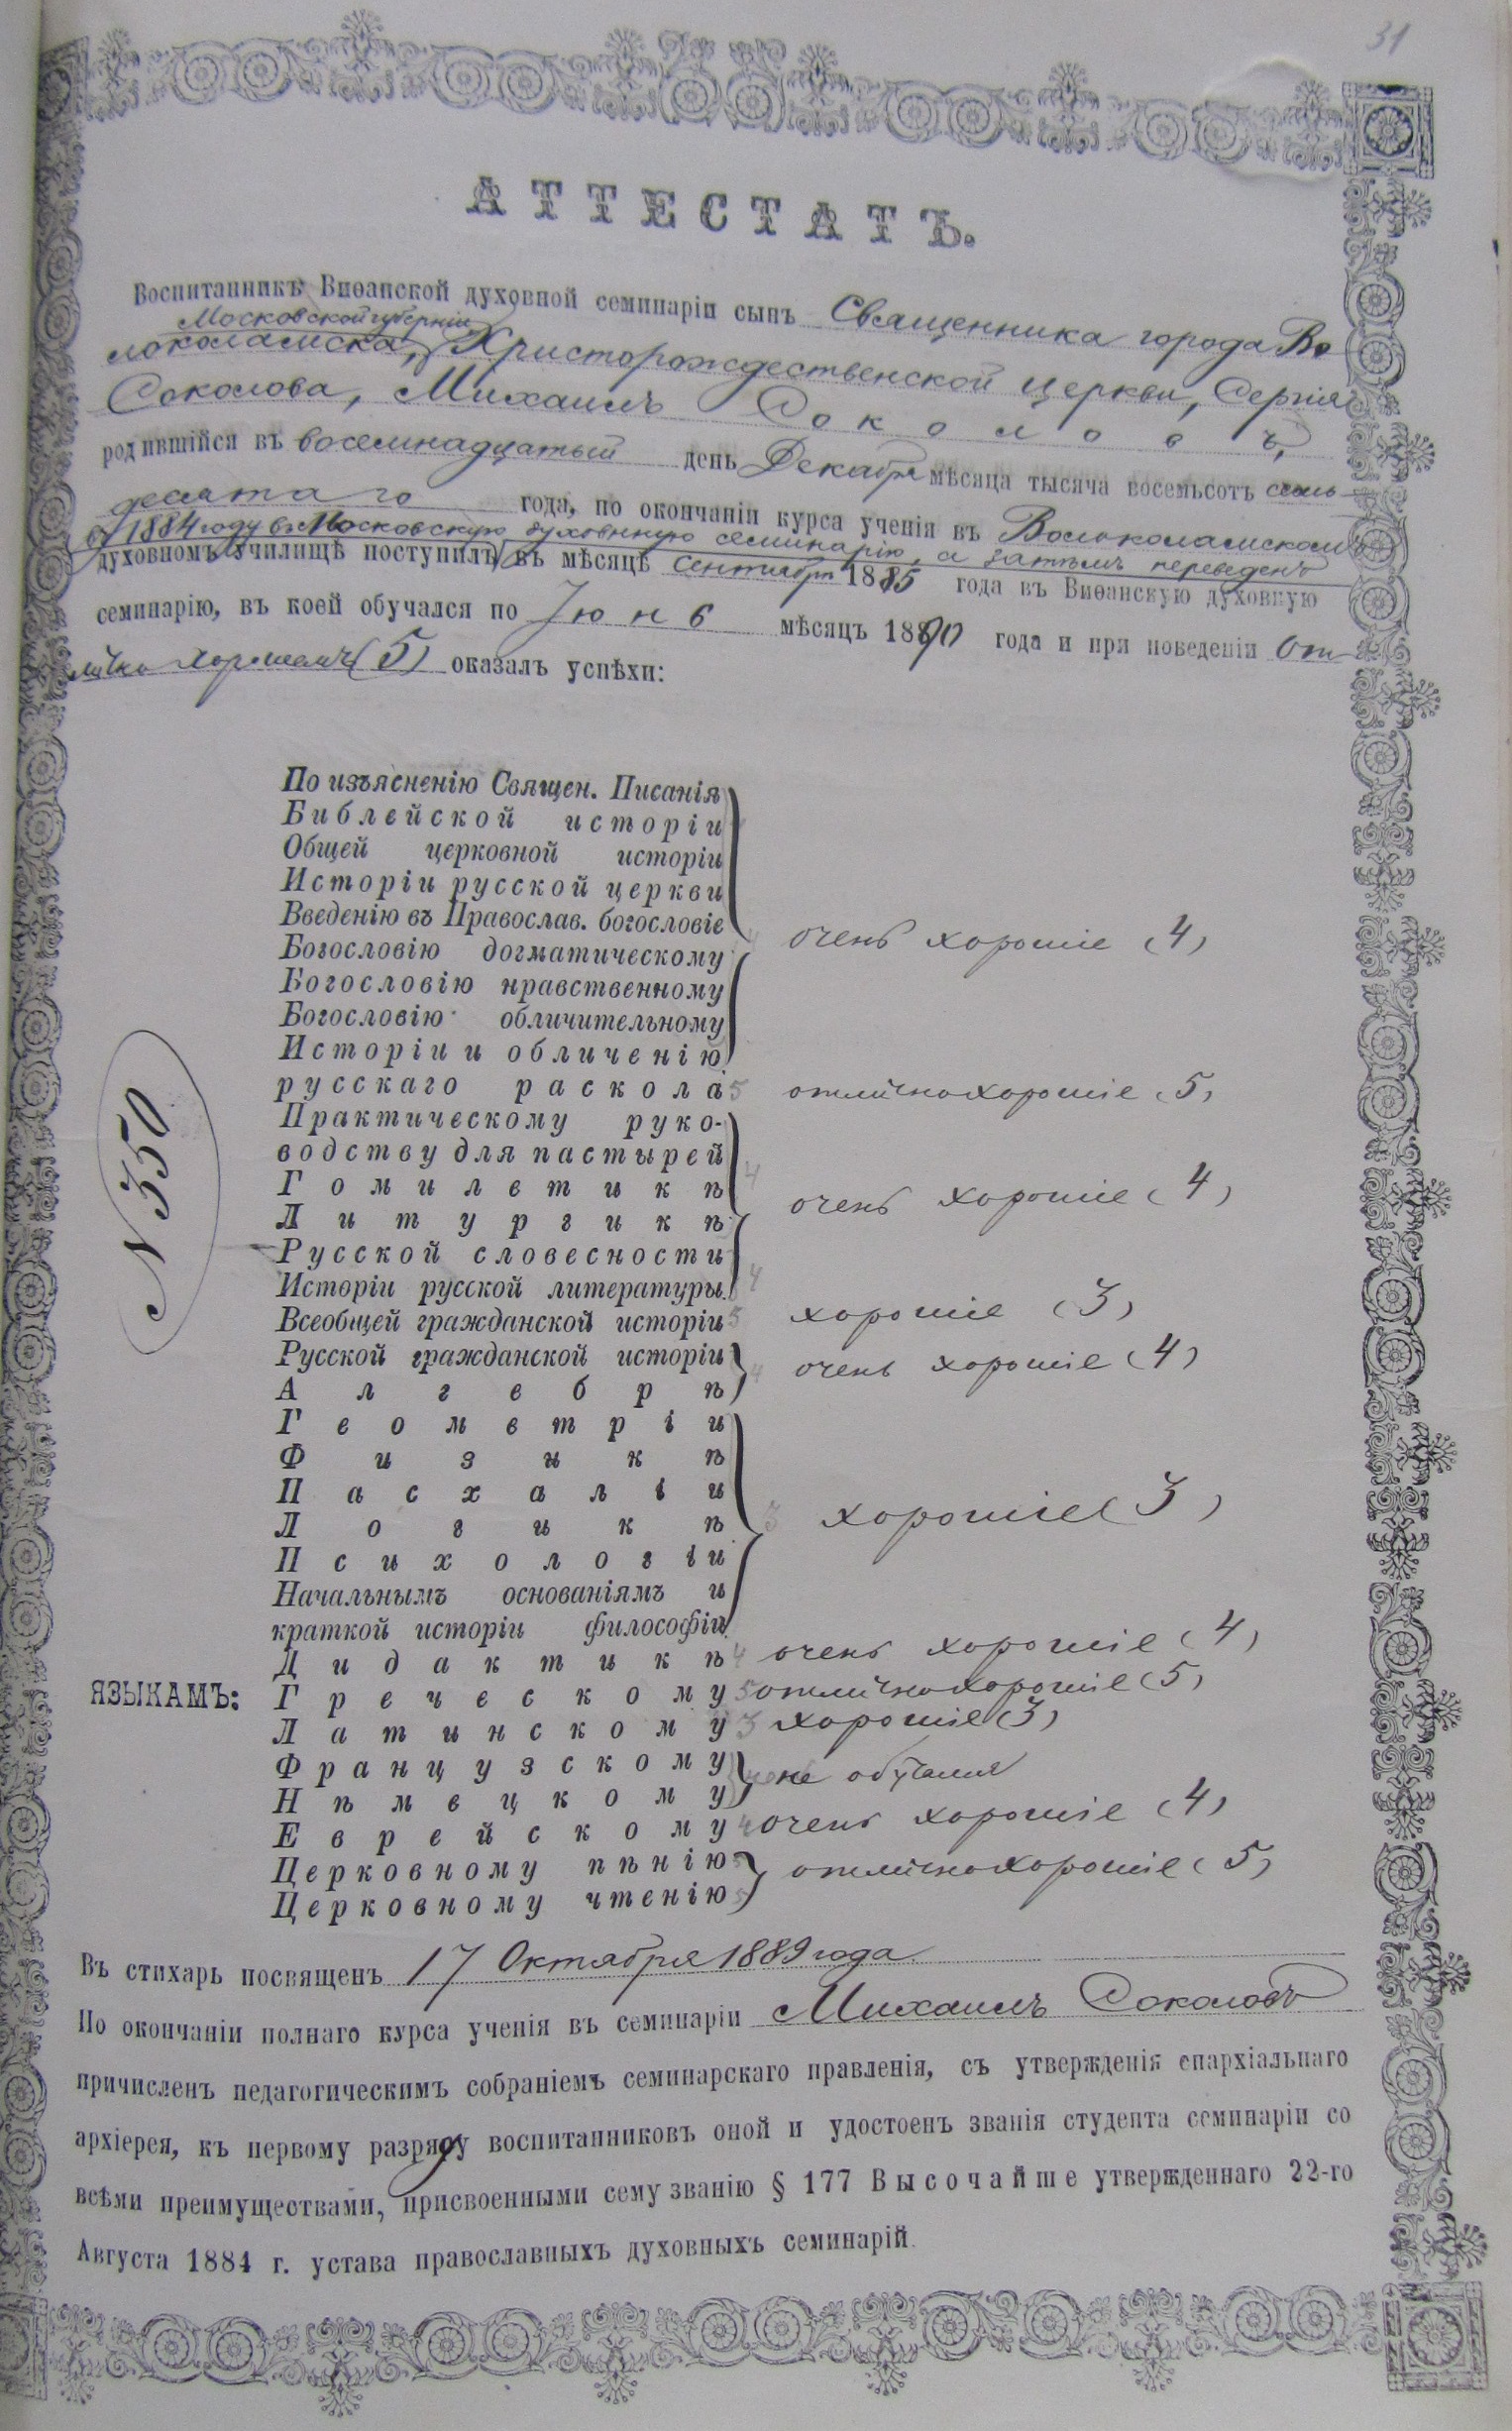 31
АТТЕСТАТЪ.
Воспитанникъ Виѳанской духовной семинаріи сынъ Священника города Во-
Московской губерніи
локоламска, Христорождественской церкви, Сергія
Соколова, Михаилъ Соколовъ,
родившійся въ восемнадцатый день Декабря мѣсяца тысяча восемьсотъ семь-
десятаго года, по окончаніи курса ученія въ Волоколамскомъ
въ 1884 году въ Московскую духовную семинарію, а затѣмъ переведенъ
духовномъ училищѣ поступилъ въ мѣсяцѣ Сентябрѣ 1885 года въ Виѳанскую духовную
семинарію, въ коей обучался по Іюнь мѣсяцъ 1890 года и при поведеніи от-
лично хорошемъ (5) оказалъ успѣхи:
По изъясненію Священ. Писанія
Библейской исторіи
Общей церковной исторіи
Исторіи русской церкви
Введенію въ Православ. богословіе
очень хорошіе (4)
Богословію догматическому
Богословію нравственному
Богословію обличительному
Исторіи и обличенію
русскаго раскола 5 отлично хорошіе (5)
Практическому руко-
водству для пастырей
Гомилетикѣ 4 очень хорошіе (4)
Литургикѣ
Русской словесности
Исторіи русской литературы. 4
Всеобщей гражданской исторіи 5 хорошіе (3)
Русской гражданской исторіи 4 очень хорошіе (4)
Алгебрѣ
Геометріи
Физикѣ
Пасхаліи
Логикѣ 3 хорошіе (3)
Психологіи
Начальнымъ основаніямъ и
краткой исторіи философіи
Дидактикѣ 4 очень хорошіе (4)
ЯЗЫКАМЪ: Греческому 5 отлично хорошіе (5)
Латинскому 3 хорошіе (3)
Французскому не обучался
Нѣмецкому
Еврейскому 4 очень хорошіе (4)
Церковному пѣнію 5 отлично хорошіе (5)
Церковному чтенію 5
N 350
Въ стихарь посвященъ 17 Октября 1889 года
По окончаніи полнаго курса ученія въ семинаріи Михаилъ Соколовъ
причисленъ педагогическимъ собраніемъ семинарскаго правленія, съ утвержденія епархіальнаго
архіерея, къ первому разряду воспитанниковъ оной и удостоенъ званія студента семинаріи со
всѣми преимуществами, присвоенными сему званію § 177 Высочайше утвержденнаго 22-го
Августа 1884 г. устава православныхъ духовныхъ семинарій.